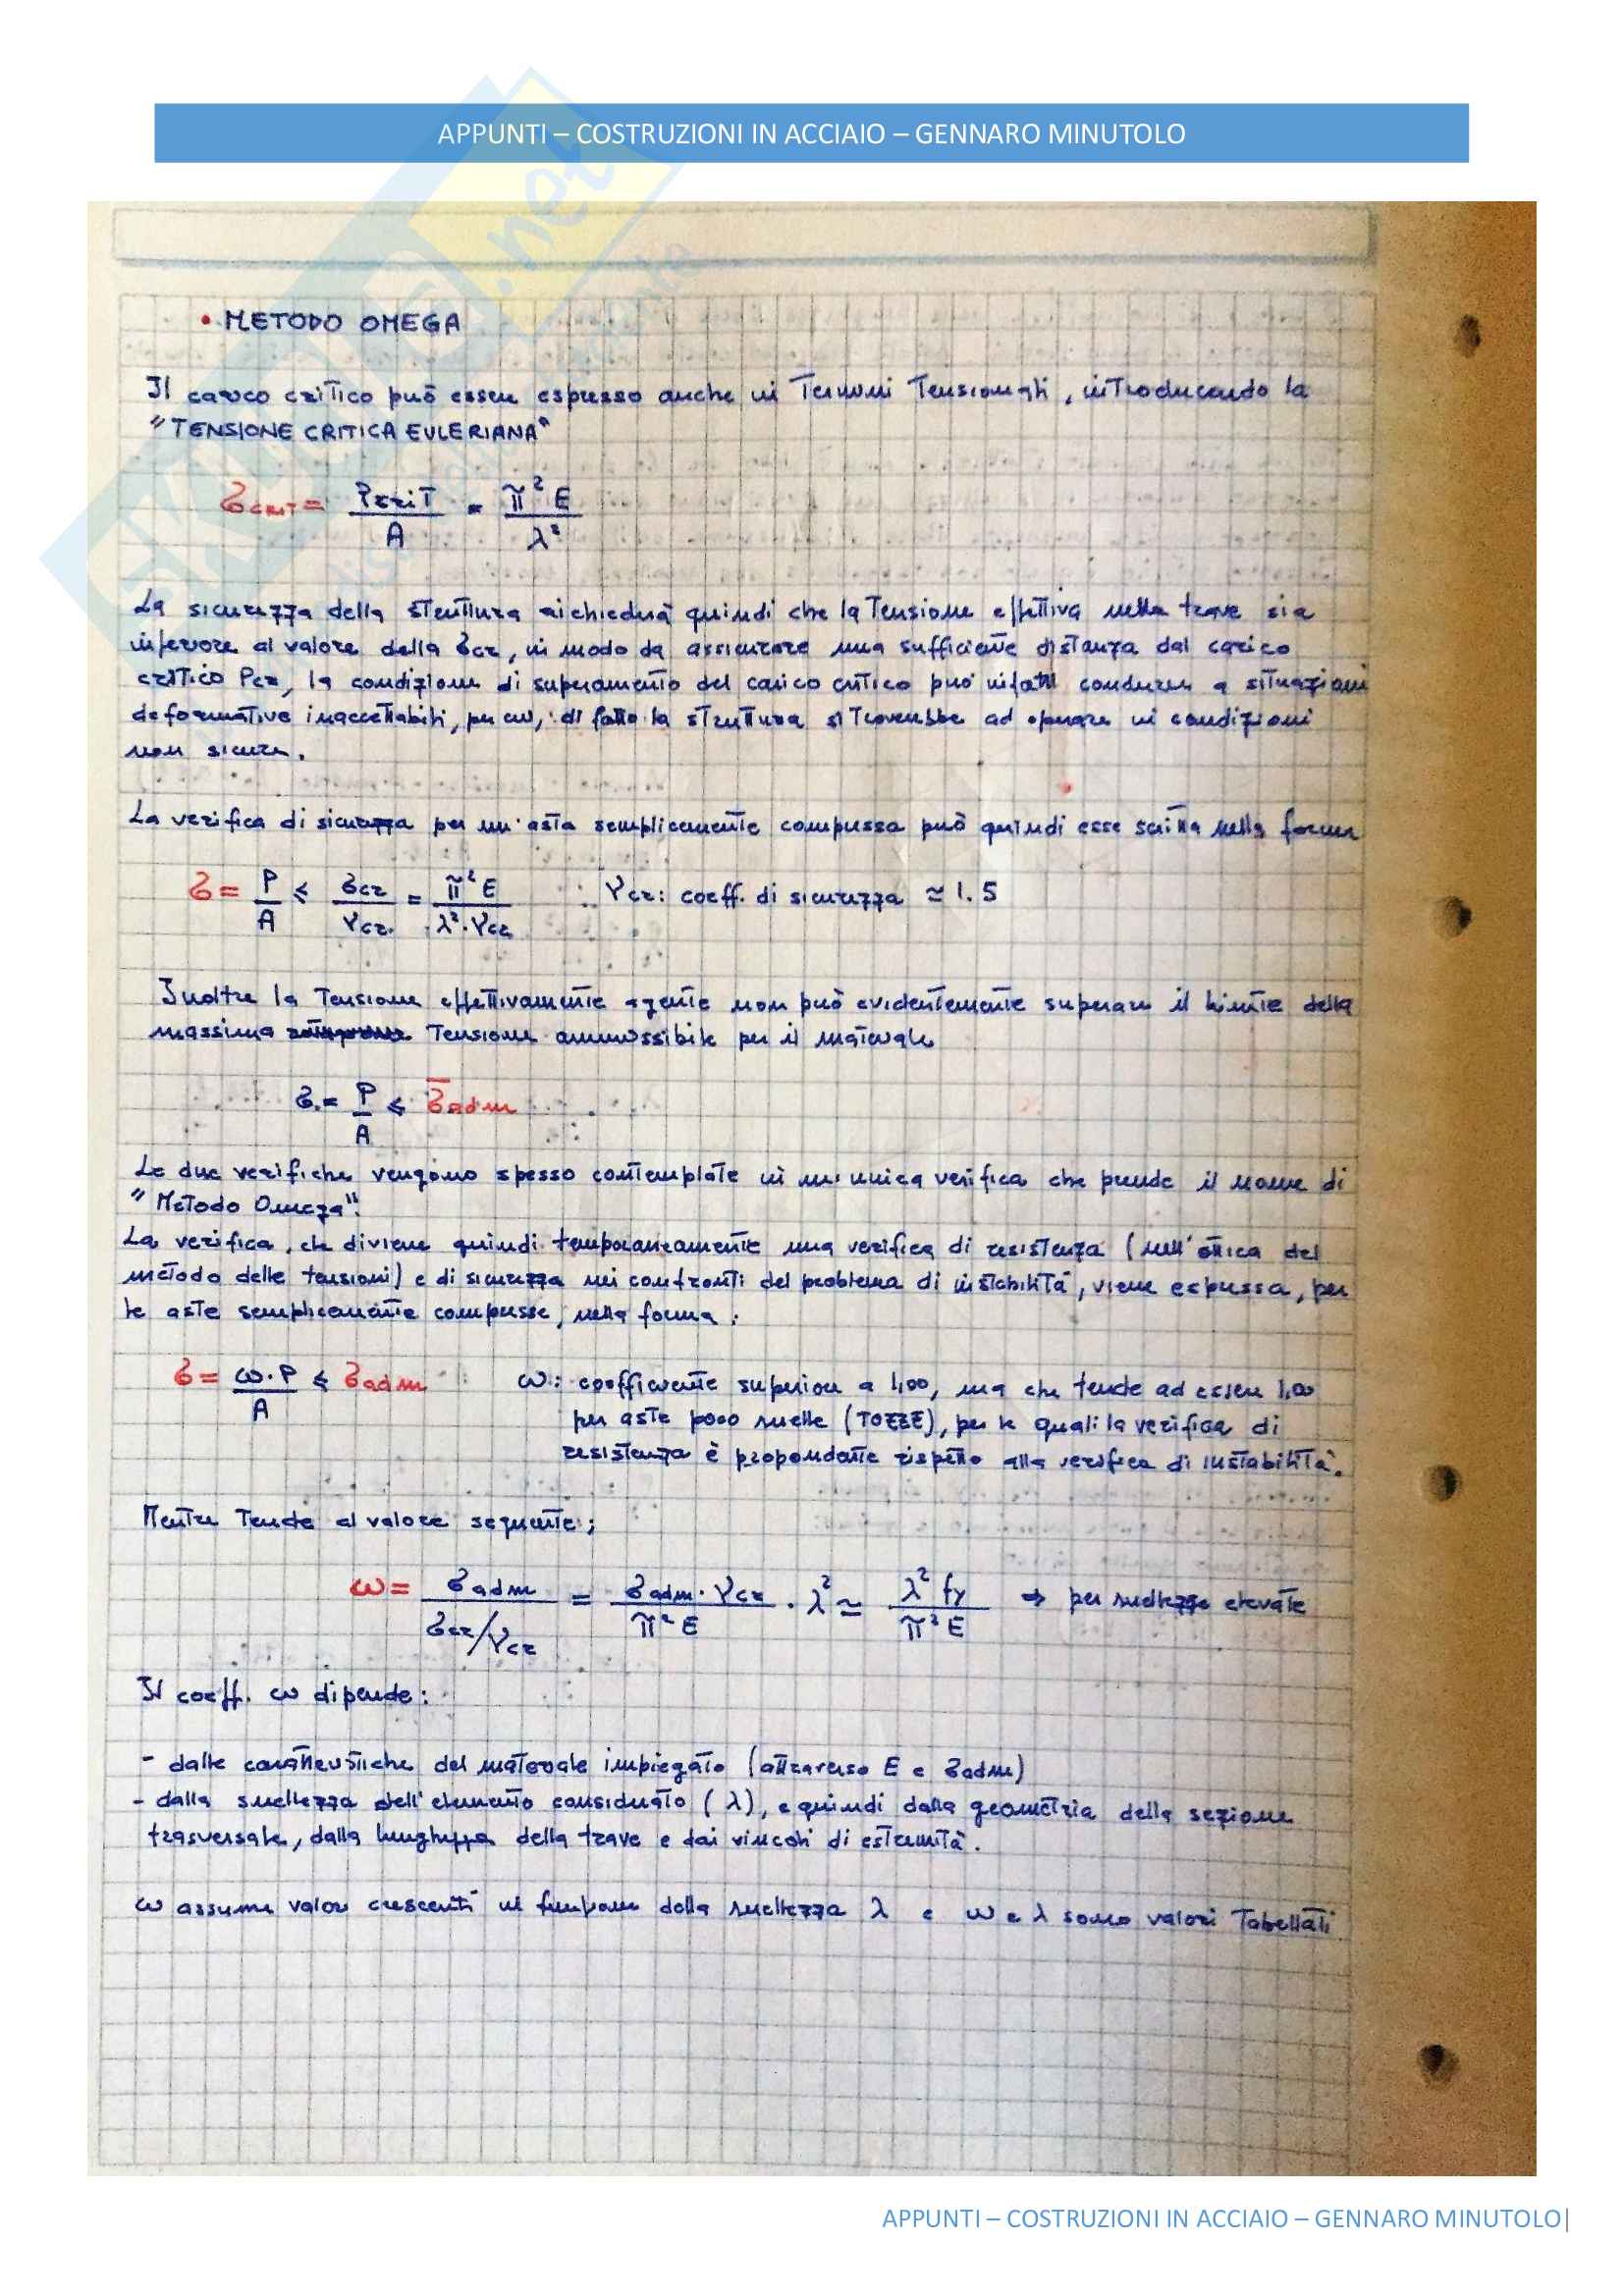 APPUNTI – COSTRUZIONI IN ACCIAIO – GENNARO MINUTOLO
• METODO OMEGA
Il carico critico può essere espresso anche in Termini Tensionali, introducendo la
"TENSIONE CRITICA EULERIANA"
σCRIT = PcriT/A = π² E/λ²
La sicurezza della struttura richiederà quindi che la Tensione effettiva nella trave sia
inferiore al valore della σcr, in modo da assicurare una sufficiente distanza dal carico
critico Pcr, la condizione di superamento del carico critico può infatti condurre a situazioni
deformative inaccettabili, per cui, di fatto la struttura si troverebbe ad operare in condizioni
non sicure.
La verifica di sicurezza per un'asta semplicemente compressa può quindi esse scritta nella forma
σ = P/A ≤ σcr/γcr = π² E/λ²·γcr γcr: coeff. di sicurezza ≃ 1.5
Inoltre la Tensione effettivamente agente non può evidentemente superare il limite della
massima Tensione ammissibile per il materiale
σ = P/A ≤ σ̄adm
Le due verifiche vengono spesso contemplate in un'unica verifica che prende il nome di
"Metodo Omega".
La verifica, che diviene quindi temporaneamente una verifica di resistenza (nell'ottica del
metodo delle tensioni) e di sicurezza nei confronti del problema di instabilità, viene espressa, per
le aste semplicemente compresse, nella forma:
σ = ω·P/A ≤ σadm ω: coefficiente superiore a 1,00, ma che tende ad essere 1,00
per aste poco snelle (TOZZE), per le quali la verifica di
resistenza è propondante rispetto alla verifica di instabilità.
Mentre Tende al valore seguente;
ω = σadm/σcr/γcr = σadm·γcr/π² E · λ² ≃ λ² fy/π² E ⇒ per snellezze elevate
Il coeff. ω dipende:
- dalle caratteristiche del materiale impiegato (attraverso E e σadm)
- dalla snellezza dell'elemento considerato (λ), e quindi dalla geometria della sezione
trasversale, dalla lunghezza della trave e dai vincoli di estremità.
ω assume valori crescenti in funzione della snellezza λ e ω e λ sono valori Tabellati
APPUNTI – COSTRUZIONI IN ACCIAIO – GENNARO MINUTOLO|